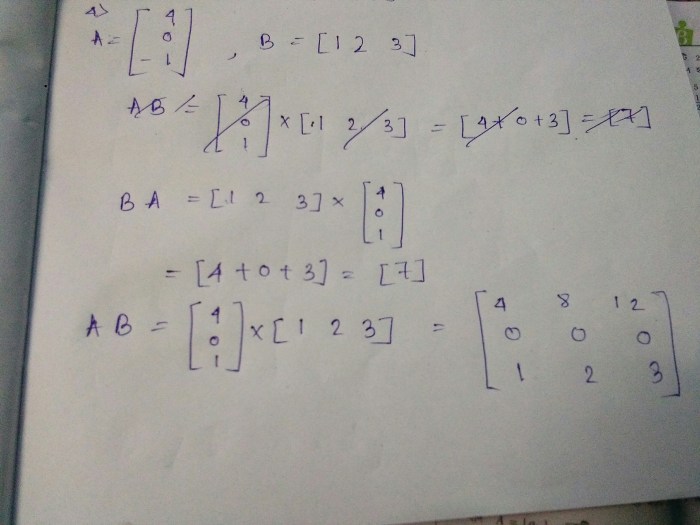 4>
A = [ 4 0 -1 ] , B = [ 1 2 3 ]
AB = [ 4 0 1 ] × [ 1 2 3 ] = [ 4 + 0 + 3 ] = [7]
BA = [ 1 2 3 ] × [ 4 0 1 ]
= [ 4 + 0 + 3 ] = [ 7 ]
AB = [ 4 0 1 ] × [ 1 2 3 ] = [ 4 8 12
0 0 0
1 2 3 ]